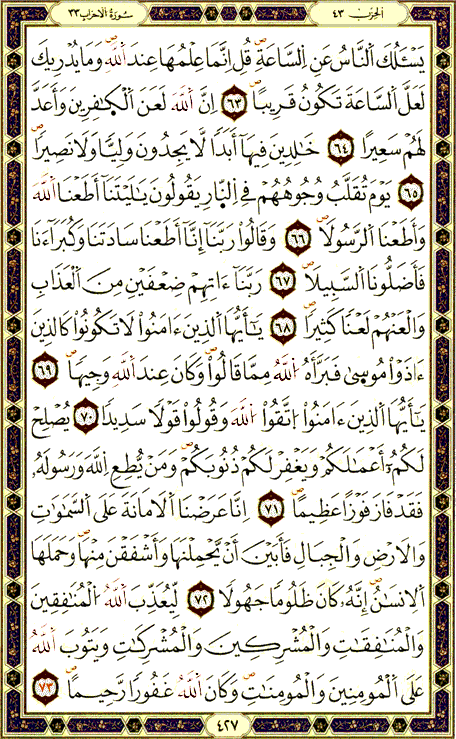 الحزب ٤٣
سورة الاحزاب ٣٣
يَسْـَٔلُكَ اَ۬لنَّاسُ عَنِ اِ۬لسَّاعَةِۖ قُلِ اِنَّمَا عِلْمُهَا عِندَ اَ۬للَّهِۖ وَمَا يُدْرِيكَ
لَعَلَّ اَ۬لسَّاعَةَ تَكُونُ قَرِيباًۖ ٦٣ اِنَّ اَ۬للَّهَ لَعَنَ اَ۬لْكٰفِرِينَ وَأَعَدَّ
لَهُمْ سَعِيراً ٦٤ خَٰلِدِينَ فِيهَآ أَبَداً لَّا يَجِدُونَ وَلِيّاً وَلَا نَصِيراًۖ
٦٥ يَوْمَ تُقَلَّبُ وُجُوهُهُمْ فِے اِ۬لنّ۪ارِ يَقُولُونَ يَٰلَيْتَنَآ أَطَعْنَا اَ۬للَّهَ
وَأَطَعْنَا اَ۬لرَّسُولَاۖ ٦٦ وَقَالُواْ رَبَّنَآ إِنَّآ أَطَعْنَا سَادَتَنَا وَكُبَرَآءَنَا
فَأَضَلُّونَا اَ۬لسَّبِيلَاۖ ٦٧ رَبَّنَآ ءَاتِهِمْ ضِعْفَيْنِ مِنَ اَ۬لْعَذَابِ
وَالْعَنْهُمْ لَعْناً كَثِيراًۖ ٦٨ يَٰٓأَيُّهَا اَ۬لذِينَ ءَامَنُواْ لَا تَكُونُواْ كَالذِينَ
ءَاذَوْاْ مُوس۪يٰ فَبَرَّأَهُ اُ۬للَّهُ مِمَّا قَالُواْۖ وَكَانَ عِندَ اَ۬للَّهِ وَجِيهاًۖ ٦٩
يَٰٓأَيُّهَا اَ۬لذِينَ ءَامَنُواْ اُ۪تَّقُواْ اُ۬للَّهَ وَقُولُواْ قَوْلاً سَدِيداً ٧٠ يُصْلِحْ
لَكُمُۥٓ أَعْمَٰلَكُمْ وَيَغْفِرْ لَكُمْ ذُنُوبَكُمْۖ وَمَنْ يُّطِعِ اِ۬للَّهَ وَرَسُولَهُۥ
فَقَدْ فَازَ فَوْزاً عَظِيماًۖ ٧١ اِنَّا عَرَضْنَا اَ۬لَامَانَةَ عَلَي اَ۬لسَّمَٰوَٰتِ
وَالَارْضِ وَالْجِبَالِ فَأَبَيْنَ أَنْ يَّحْمِلْنَهَا وَأَشْفَقْنَ مِنْهَاۖ وَحَمَلَهَا
اَ۬لِانسَٰنُۖ إِنَّهُۥ كَانَ ظَلُوماً جَهُولاً ٧٢ لِّيُعَذِّبَ اَ۬للَّهُ اُ۬لْمُنَٰفِقِينَ
وَالْمُنَٰفِقَٰتِ وَالْمُشْرِكِينَ وَالْمُشْرِكَٰتِ وَيَتُوبَ اَ۬للَّهُ
عَلَي اَ۬لْمُومِنِينَ وَالْمُومِنَٰتِۖ وَكَانَ اَ۬للَّهُ غَفُوراً رَّحِيماًۖ ٧٣
٤٢٧